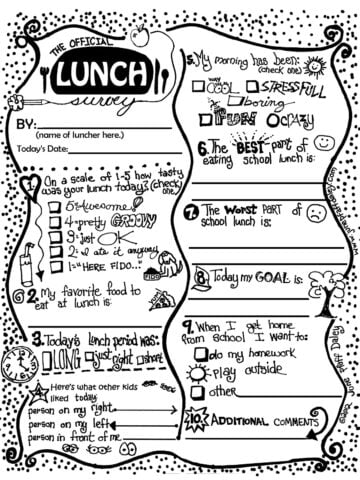 THE OFFICIAL
LUNCH
survey
BY:
(name of luncher here.)
Today's Date:
1. On a scale of 1-5 how tasty
was your lunch today? (check
one)
5: Awesome!
4=pretty GROOVY
3=just OK
2=I ate it anyway
1="HERE FIDO..."
FIDO
2. My favorite food to
eat at lunch is:
3. Today's lunch period was:
LONG just right short
4. Here's what other kids
liked today:
person on my right
person on my left
person in front of me
5. My morning has been:
(check one)
way
COOL STRESSFULL
boring
FUN CRAZY
6. The "BEST" part of
eating school lunch is:
7. The WORST PART OF
school lunch is:
8. Today my GOAL is:
9. When I get home
from school I want to:
do my homework
play outside
other
10. ADDITIONAL COMMENTS